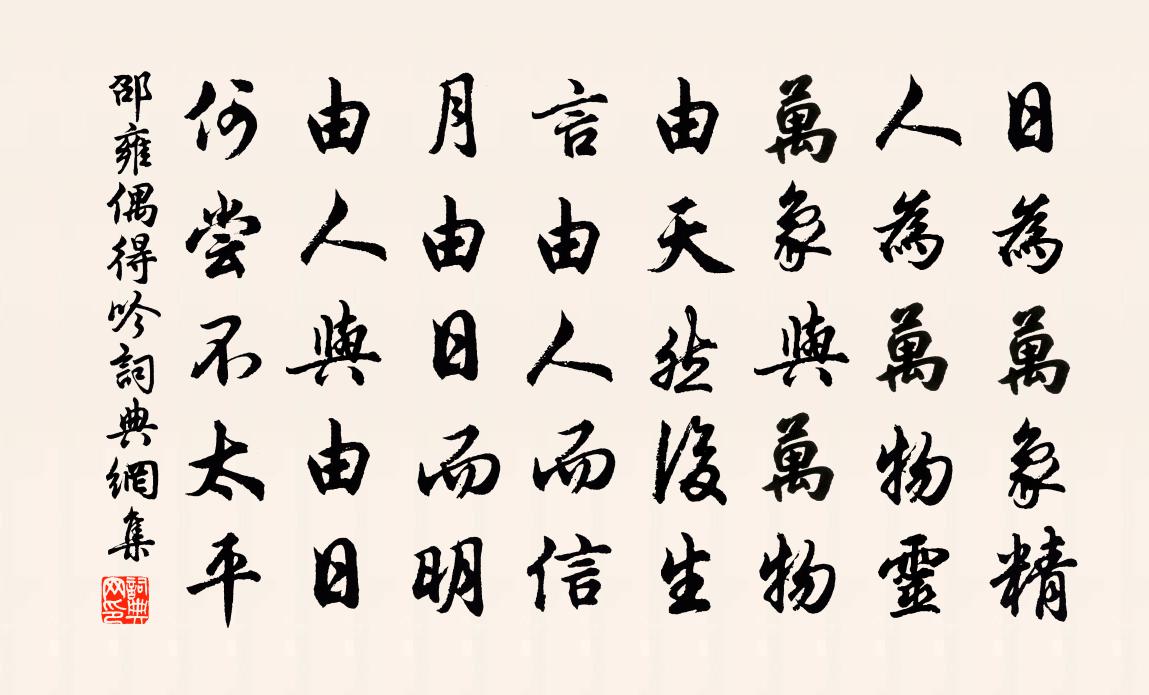 日為萬象精
人為萬物靈
萬象與萬物
由天然後生
言由人而信
月由日而明
由人與由日
何嘗不太平
邵雍偶得吟詞典網集
詞典網印